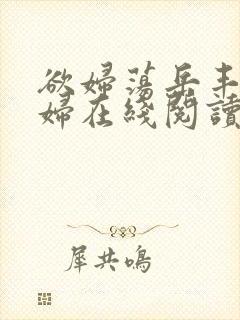 欲婦蕩岳丰
婦在綫閱讀
犀共鳴